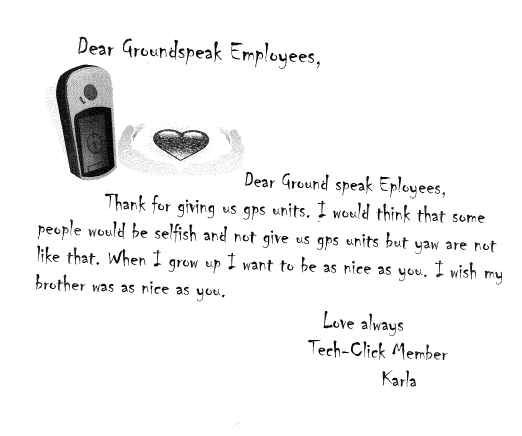 Dear Groundspeak Employees,
Dear Ground speak Eployees,
Thank for giving us gps units. I would think that some
people would be selfish and not give us gps units but yaw are not
like that. When I grow up I want to be as nice as you. I wish my
brother was as nice as you.
Love always
Tech-Click Member
Karla